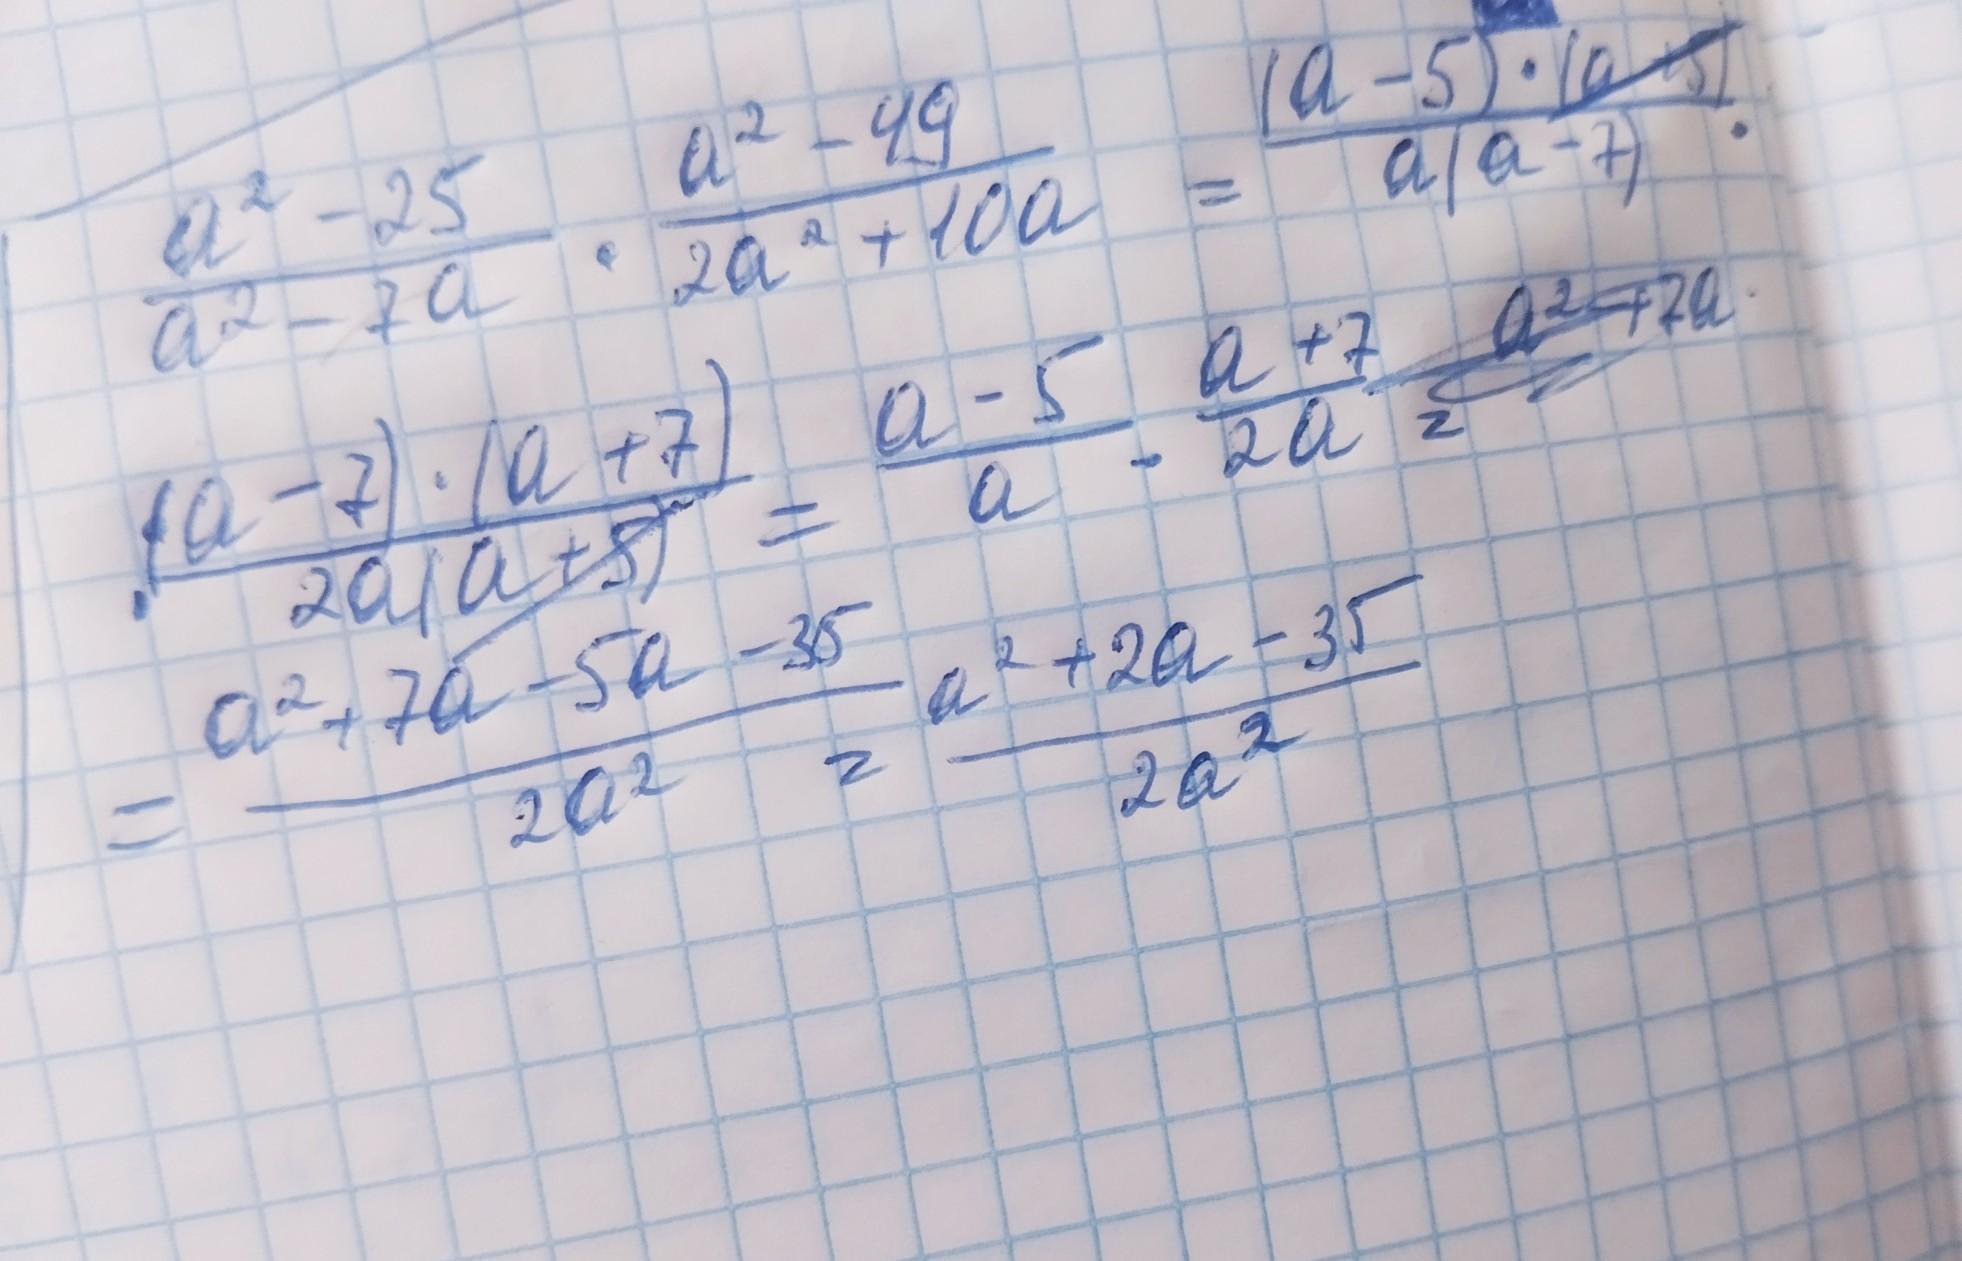 (a² - 25)/(a² - 7a) · (a² - 49)/(2a² + 10a) = ((a - 5) · (a + 5))/(a(a - 7)) ·
· ((a - 7) · (a + 7))/(2a(a + 5)) = (a - 5)/a · (a + 7)/(2a) = a² + 7a
= (a² + 7a - 5a - 35)/(2a²) = (a² + 2a - 35)/(2a²)